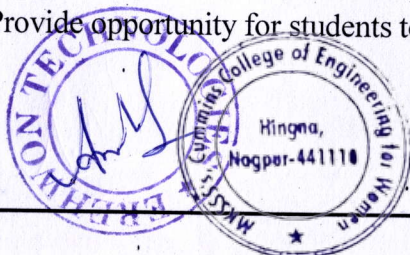 Provide opportunity for students to
EREHWON TECHNOLOGIES
MKSSS's, Cummins College of Engineering for Women
Hingna,
Nagpur-441110